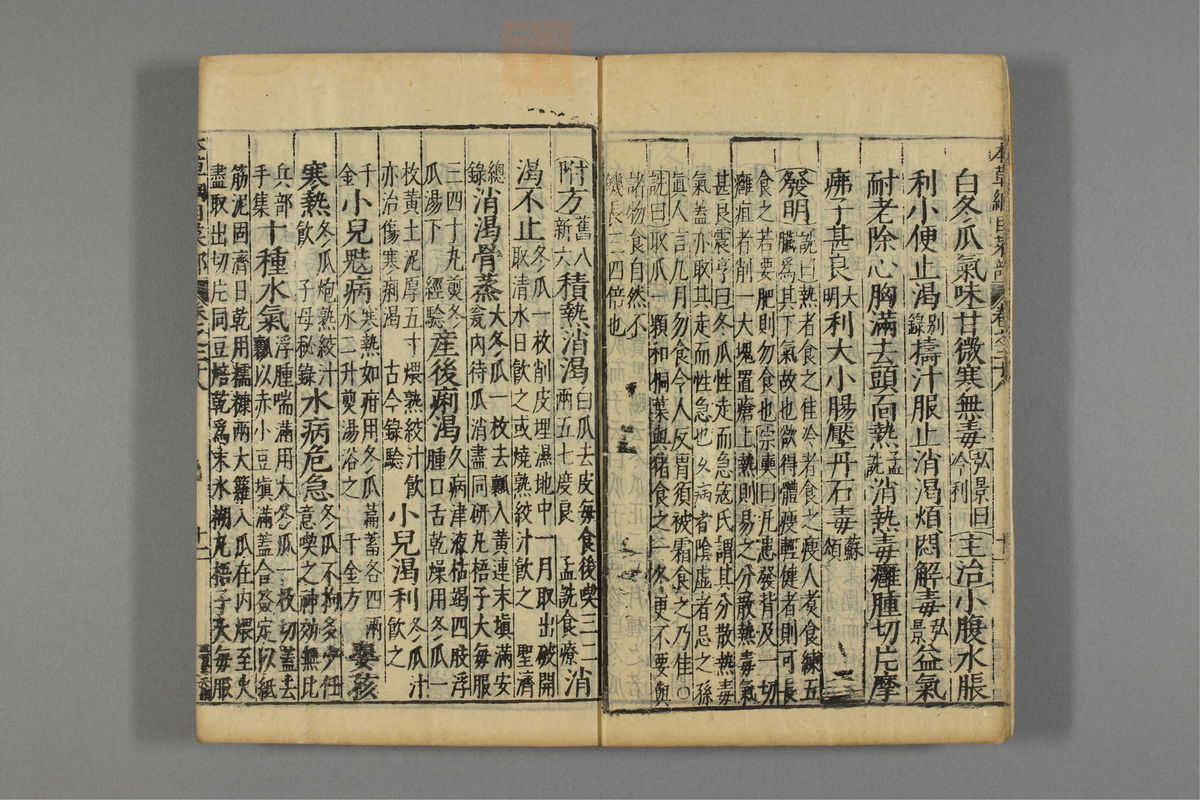 白冬瓜氣味甘微寒無毒弘景曰冷利主治小腹水脹
利小便止渴別錄擣汁服止消渴煩悶解毒弘景益氣
耐老除心胸滿去頭面熱孟詵消熱毒癰腫切片摩
疿子甚良大明利大小腸壓丹石毒蘇頌
發明詵曰熱者食之佳冷者食之瘦人煮食練五
臟爲其下氣故也欲得體瘦輕健者則可長
食之若要肥則勿食也宗奭曰凡患發背及一切
癰疽者削一大塊置瘡上熱則易之分散熱毒氣
甚良震亨曰冬瓜性走而急寇氏謂其分散熱毒
氣蓋亦取其走而性急也久病者陰虛者忌之孫
眞人言九月勿食令人反胃須被霜食之乃佳○
詵曰取瓜一顆和桐葉與猪食之一冬更不要與
諸物食自然不
饑長三四倍也
附方舊八新六積熱消渴白瓜去皮每食後喫三二
兩五七度良 孟詵食療消
渴不止冬瓜一枚削皮埋濕地中一月取出破開
取清水日飲之或燒熟絞汁飲之 聖濟
總錄消渴骨蒸大冬瓜一枚去瓤入黄連末填滿安
瓮內待瓜消盡同研丸梧子大每服
三四十丸煎冬
瓜湯下 經驗產後痢渴久病津液枯竭四肢浮
腫口舌乾燥用冬瓜一
枚黄土泥厚五寸煨熟絞汁飲
亦治傷寒痢渴 古今錄驗小兒渴利冬瓜汁
飲之
千金小兒鬾病寒熱如疳用冬瓜萹蓄各四兩
水二升煎湯浴之 千金方嬰孩
寒熱冬瓜炮熟絞汁
飲 子母秘錄水病危急冬瓜不拘多少任
意喫之神効無比
兵部手集十種水氣浮腫喘滿用大冬瓜一枚切蓋去
瓤以赤小豆填滿蓋合簽定以紙
筋泥固濟日乾用糯糠兩大籮入瓜在內煨至火
盡取出切片同豆焙乾爲末水糊丸梧子大每服